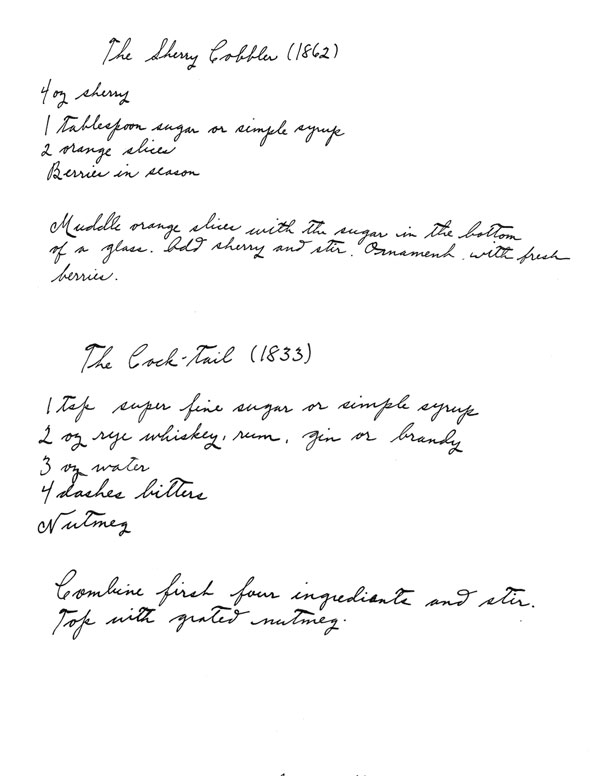 The Sherry Cobbler (1862)
4 oz sherry
1 tablespoon sugar or simple syrup
2 orange slices
Berries in season
Muddle orange slices with the sugar in the bottom
of a glass. Add sherry and stir. Ornament with fresh
berries.
The Cock-Tail (1833)
1 tsp super fine sugar or simple syrup
2 oz rye whiskey, rum, gin or brandy
3 oz water
4 dashes bitters
Nutmeg
Combine first four ingredients and stir.
Top with grated nutmeg.